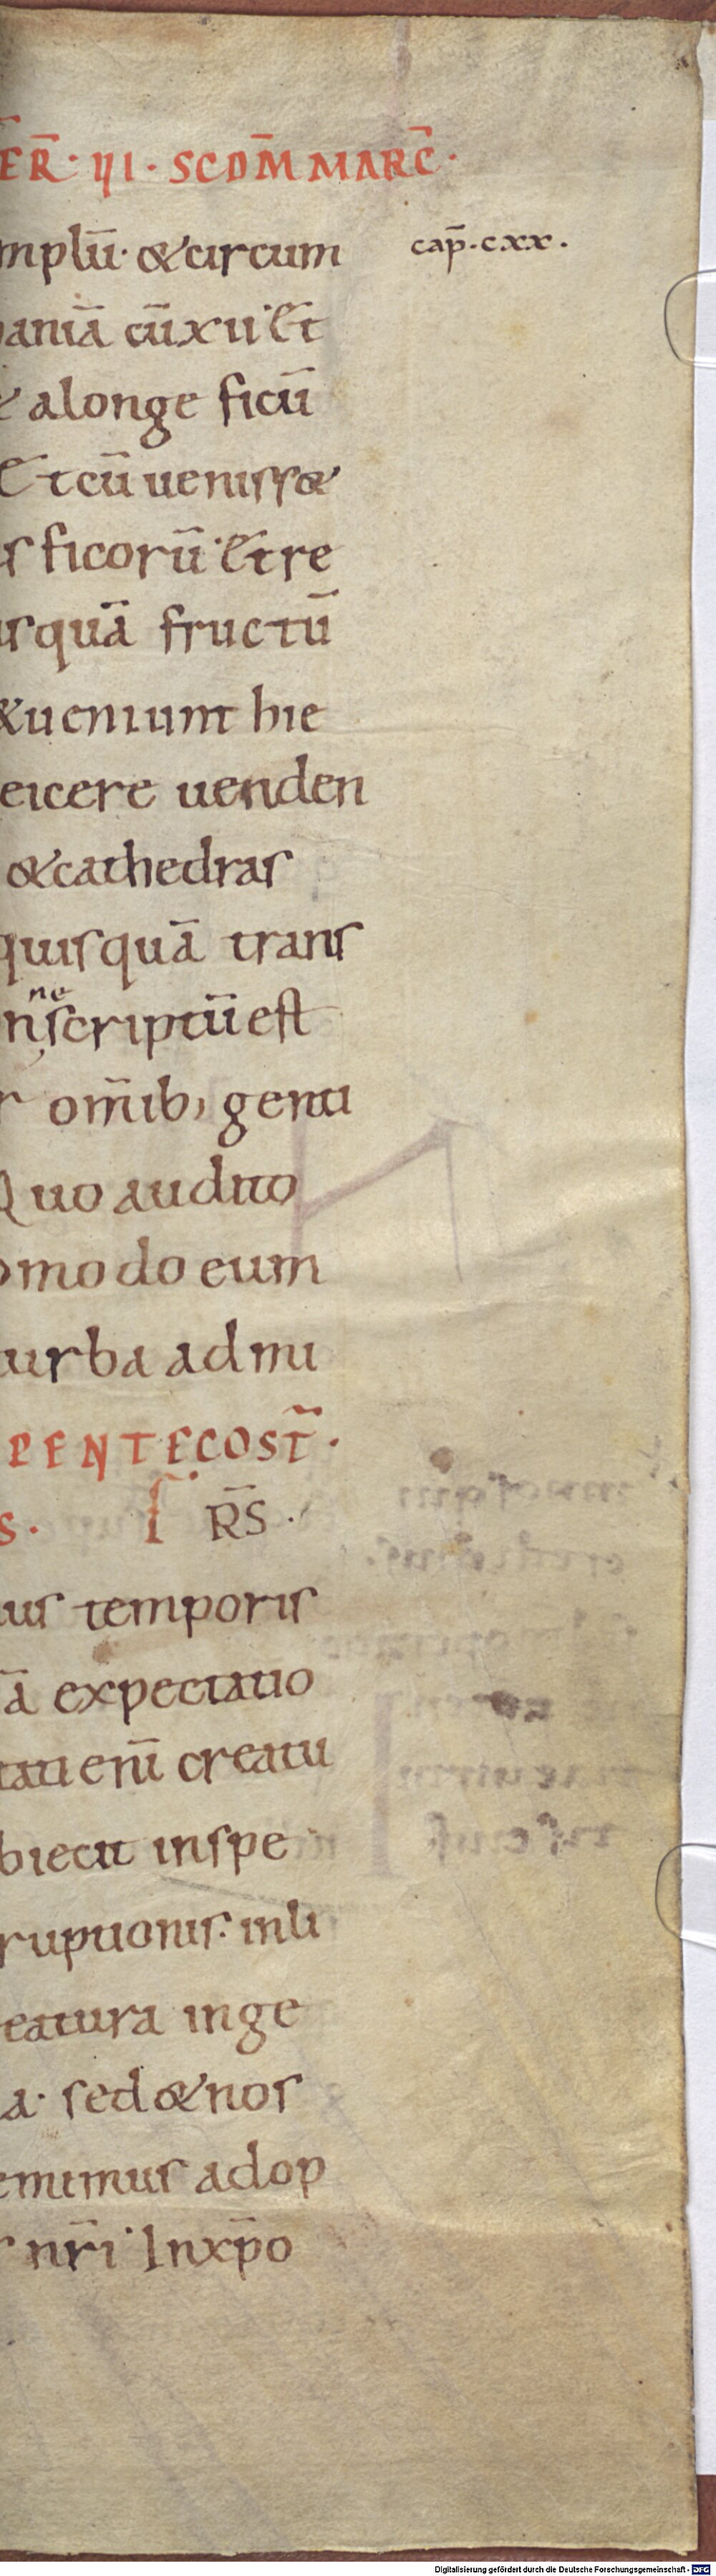 ER̄ · III · SCDM̄ MARC̄ ·
mplū · & circum
cap̄ · cxx ·
aniā cū xii · Et
& alonge ficū
Et cū uenisset
s ficorū · Et re
usquā fructū
& ueniunt hie
eicere uenden
& cathedras
quisquā trans
nne scriptū est
r om̄ib; genti
Quo audito
omodo eum
turba admi
PENTECOST̄ ·
S · F R̄S ·
ius temporis
ā expectatio
tati eni̅ creatu
biecit in spe
ruptionis · in li
eatura inge
a · sed & nos
emimus adop
nr̄i · In xp̄o
Digitalisierung gefördert durch die Deutsche Forschungsgemeinschaft - DFG